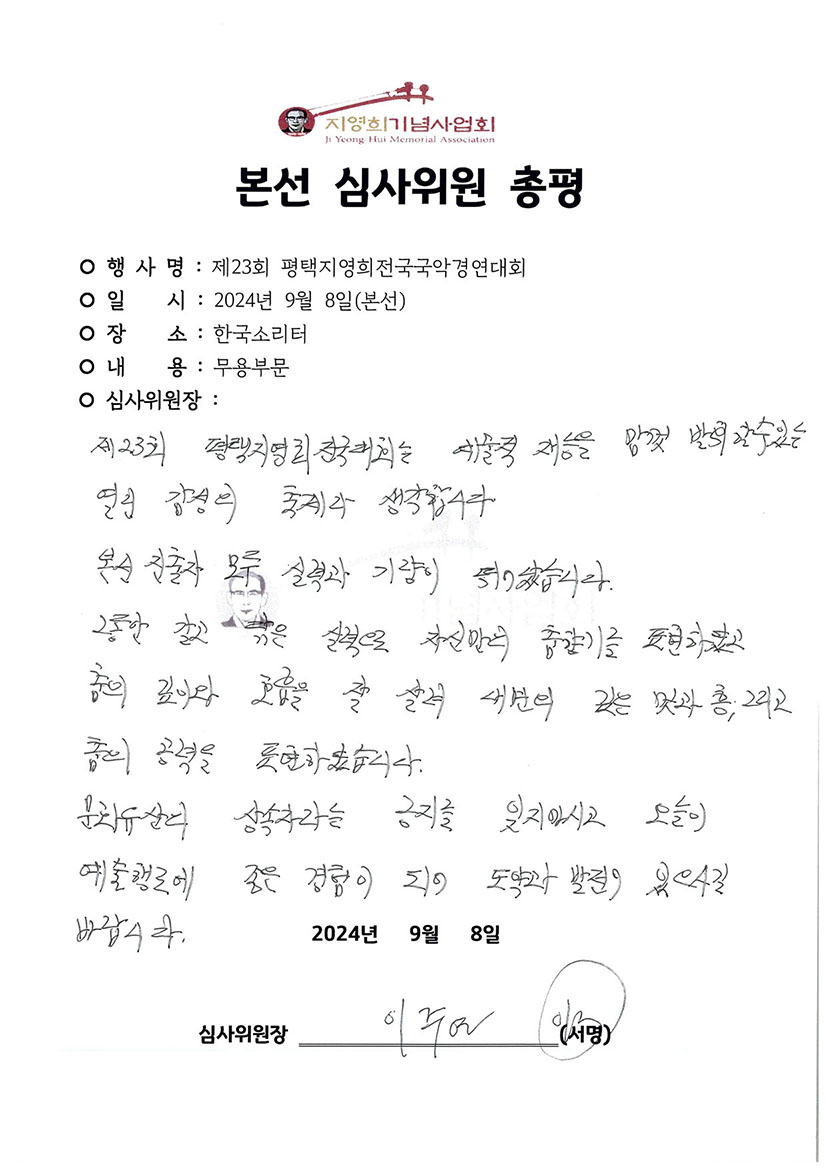 지영희기념사업회
Ji Yeong-Hui Memorial Association
본선 심사위원 총평
행 사 명 : 제23회 평택지영희전국국악경연대회
일 시 : 2024년 9월 8일(본선)
장 소 : 한국소리터
내 용 : 무용부문
심사위원장 :
제23회 평택지영희전국대회는 예술적 재능을 맘껏 발휘할수있는
열린 감성의 축제라 생각합니다
본선 진출자 모두 실력과 기량이 뛰어났습니다.
그동안 갈고 닦은 실력으로 자신만의 춤길이를 표현하였고
춤의 깊이와 호흡을 잘 살려 내면의 깊은 멋과 흥, 그리고
춤의 공력을 표현하였습니다.
문화유산의 상속자라는 긍지를 잊지마시고 오늘이
예술행로에 좋은 경험이 되어 도약과 발전이 있으시길
바랍니다.
2024년 9월 8일
심사위원장 이주 (서명)